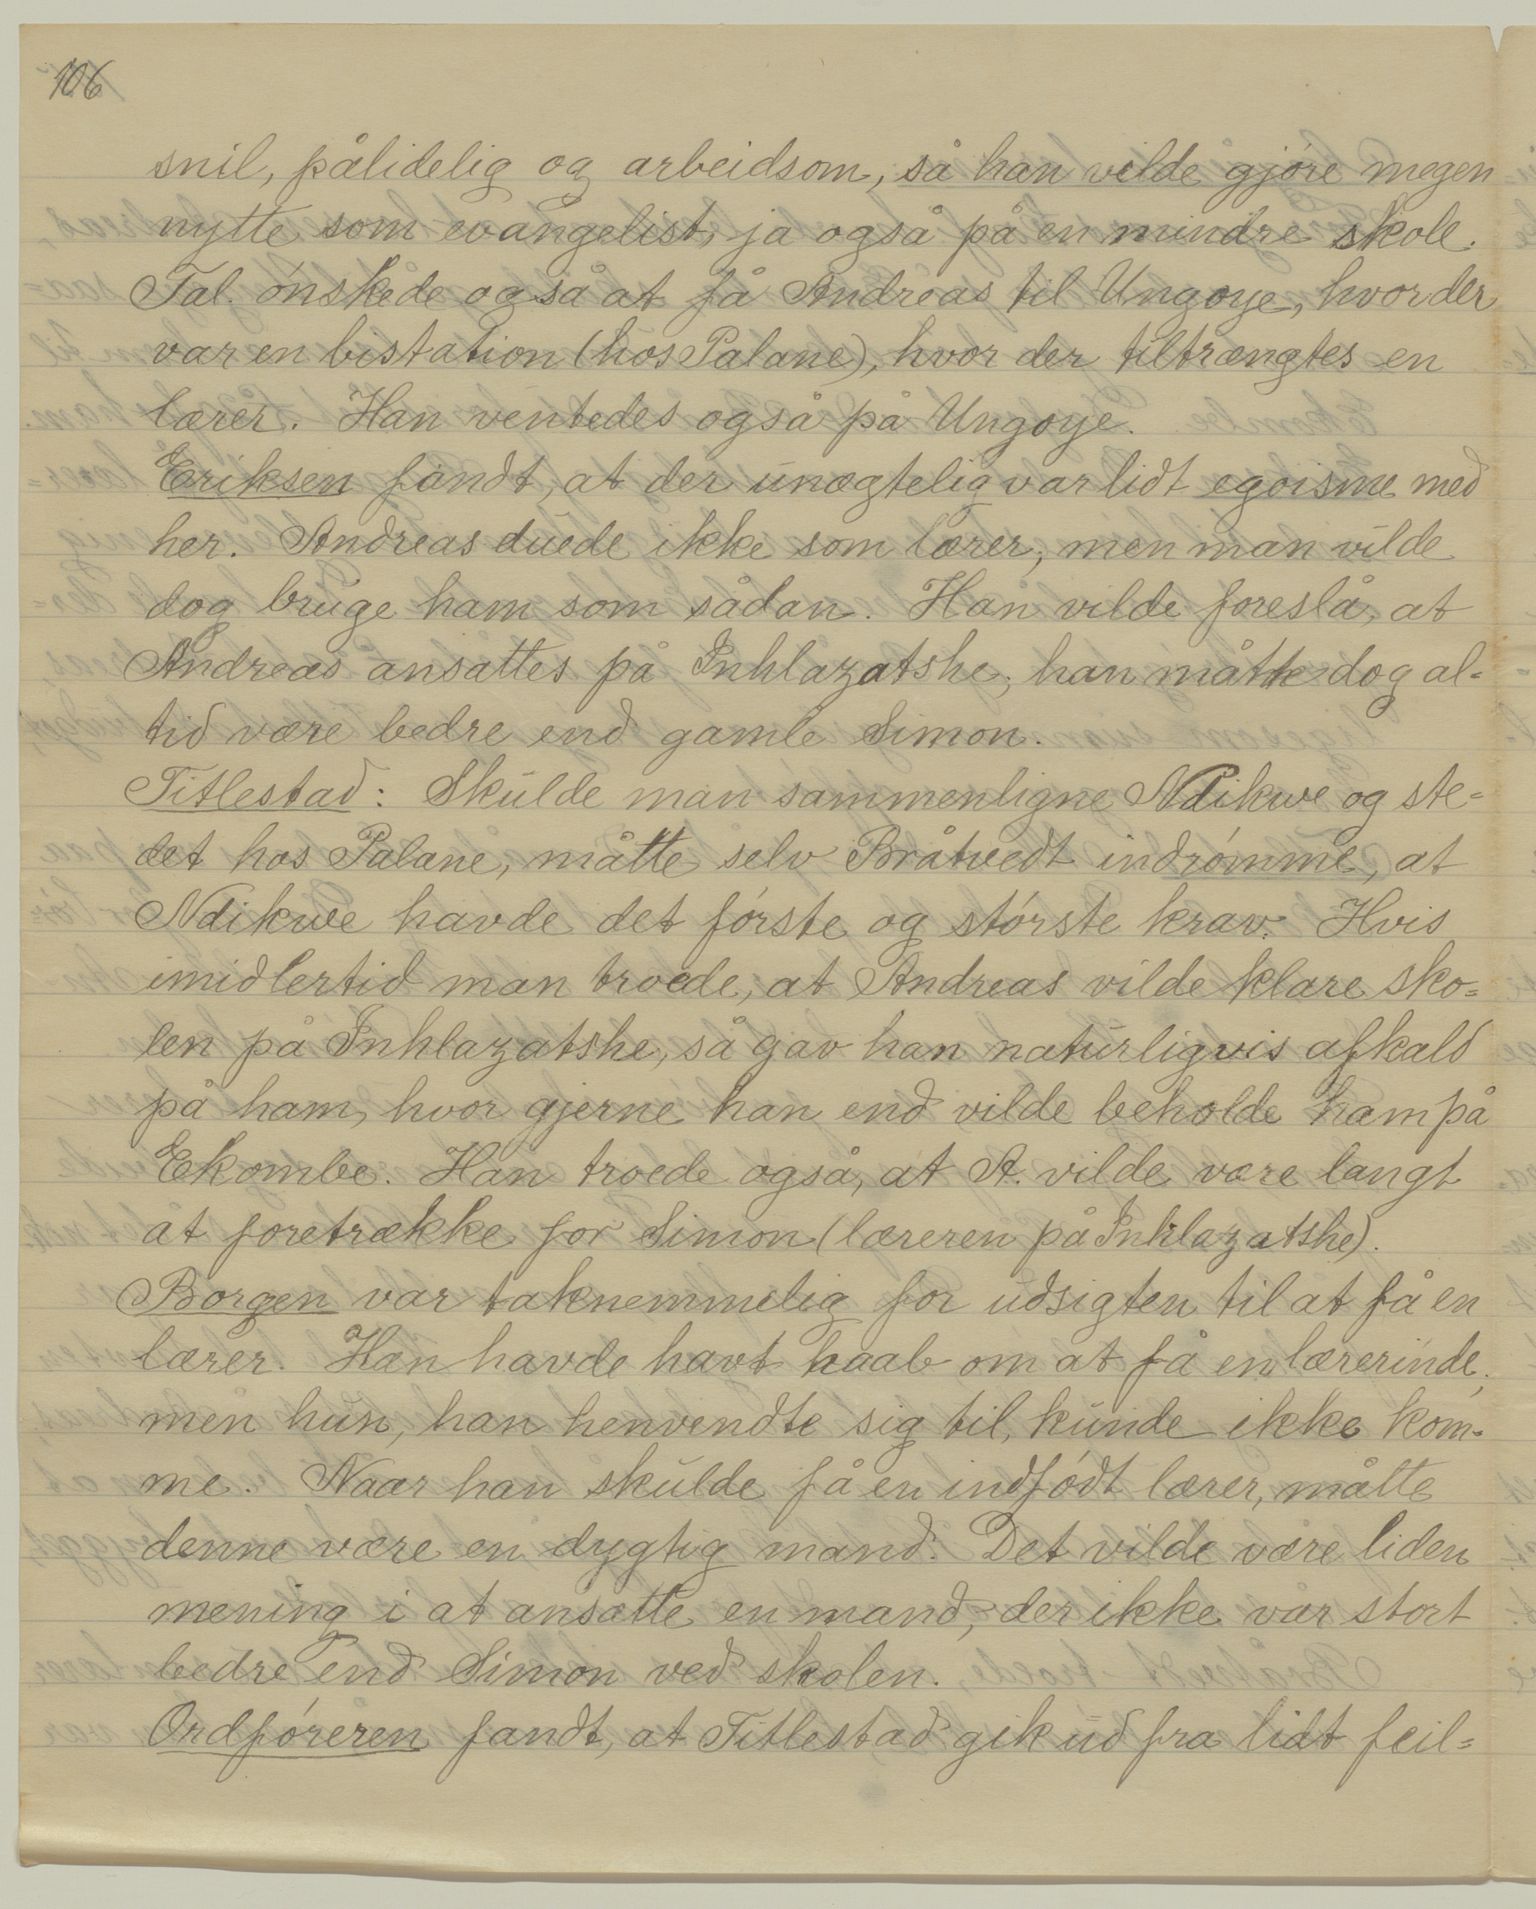 106
snil, pålidelig og arbeidsom, så han vilde gjøre megen
nytte som evangelist, ja også på en mindre skole.
Tal. ønskede også at få Andreas til Ungoye, hvor der
var en bistation (hos Palane), hvor der tiltrængtes en
lærer. Han ventedes også på Ungoye.
Eriksen fandt, at der unægtelig var lidt egoisme med
her. Andreas duede ikke som lærer, men man vilde
dog bruge ham som sådan. Han vilde foreslå, at
Andreas ansattes på Inhlazatshe; han måtte dog al-
tid være bedre end gamle Simon.
Titlestad: Skulde man sammenligne Ndikwe og ste-
det hos Palane, måtte selv Bråtvedt indrømme, at
Ndikwe havde det første og største krav. Hvis
imidlertid man troede, at Andreas vilde klare sko-
len på Inhlazatshe, så gav han naturligvis afkald
på ham, hvor gjerne han end vilde beholde ham på
Ekombe. Han troede også, at A. vilde være langt
at foretrække for Simon (læreren på Inhlazatshe).
Borgen var taknemmelig for udsigten til at få en
lærer. Han havde havt haab om at få en lærerinde,
men hun, han henvendte sig til, kunde ikke kom-
me. Naar han skulde få en indfødt lærer, måtte
denne være en dygtig mand. Det vilde være liden
mening i at ansatte en mand, der ikke var stort
bedre end Simon ved skolen.
Ordføreren fandt, at Titlestad gik ud fra lidt feil-